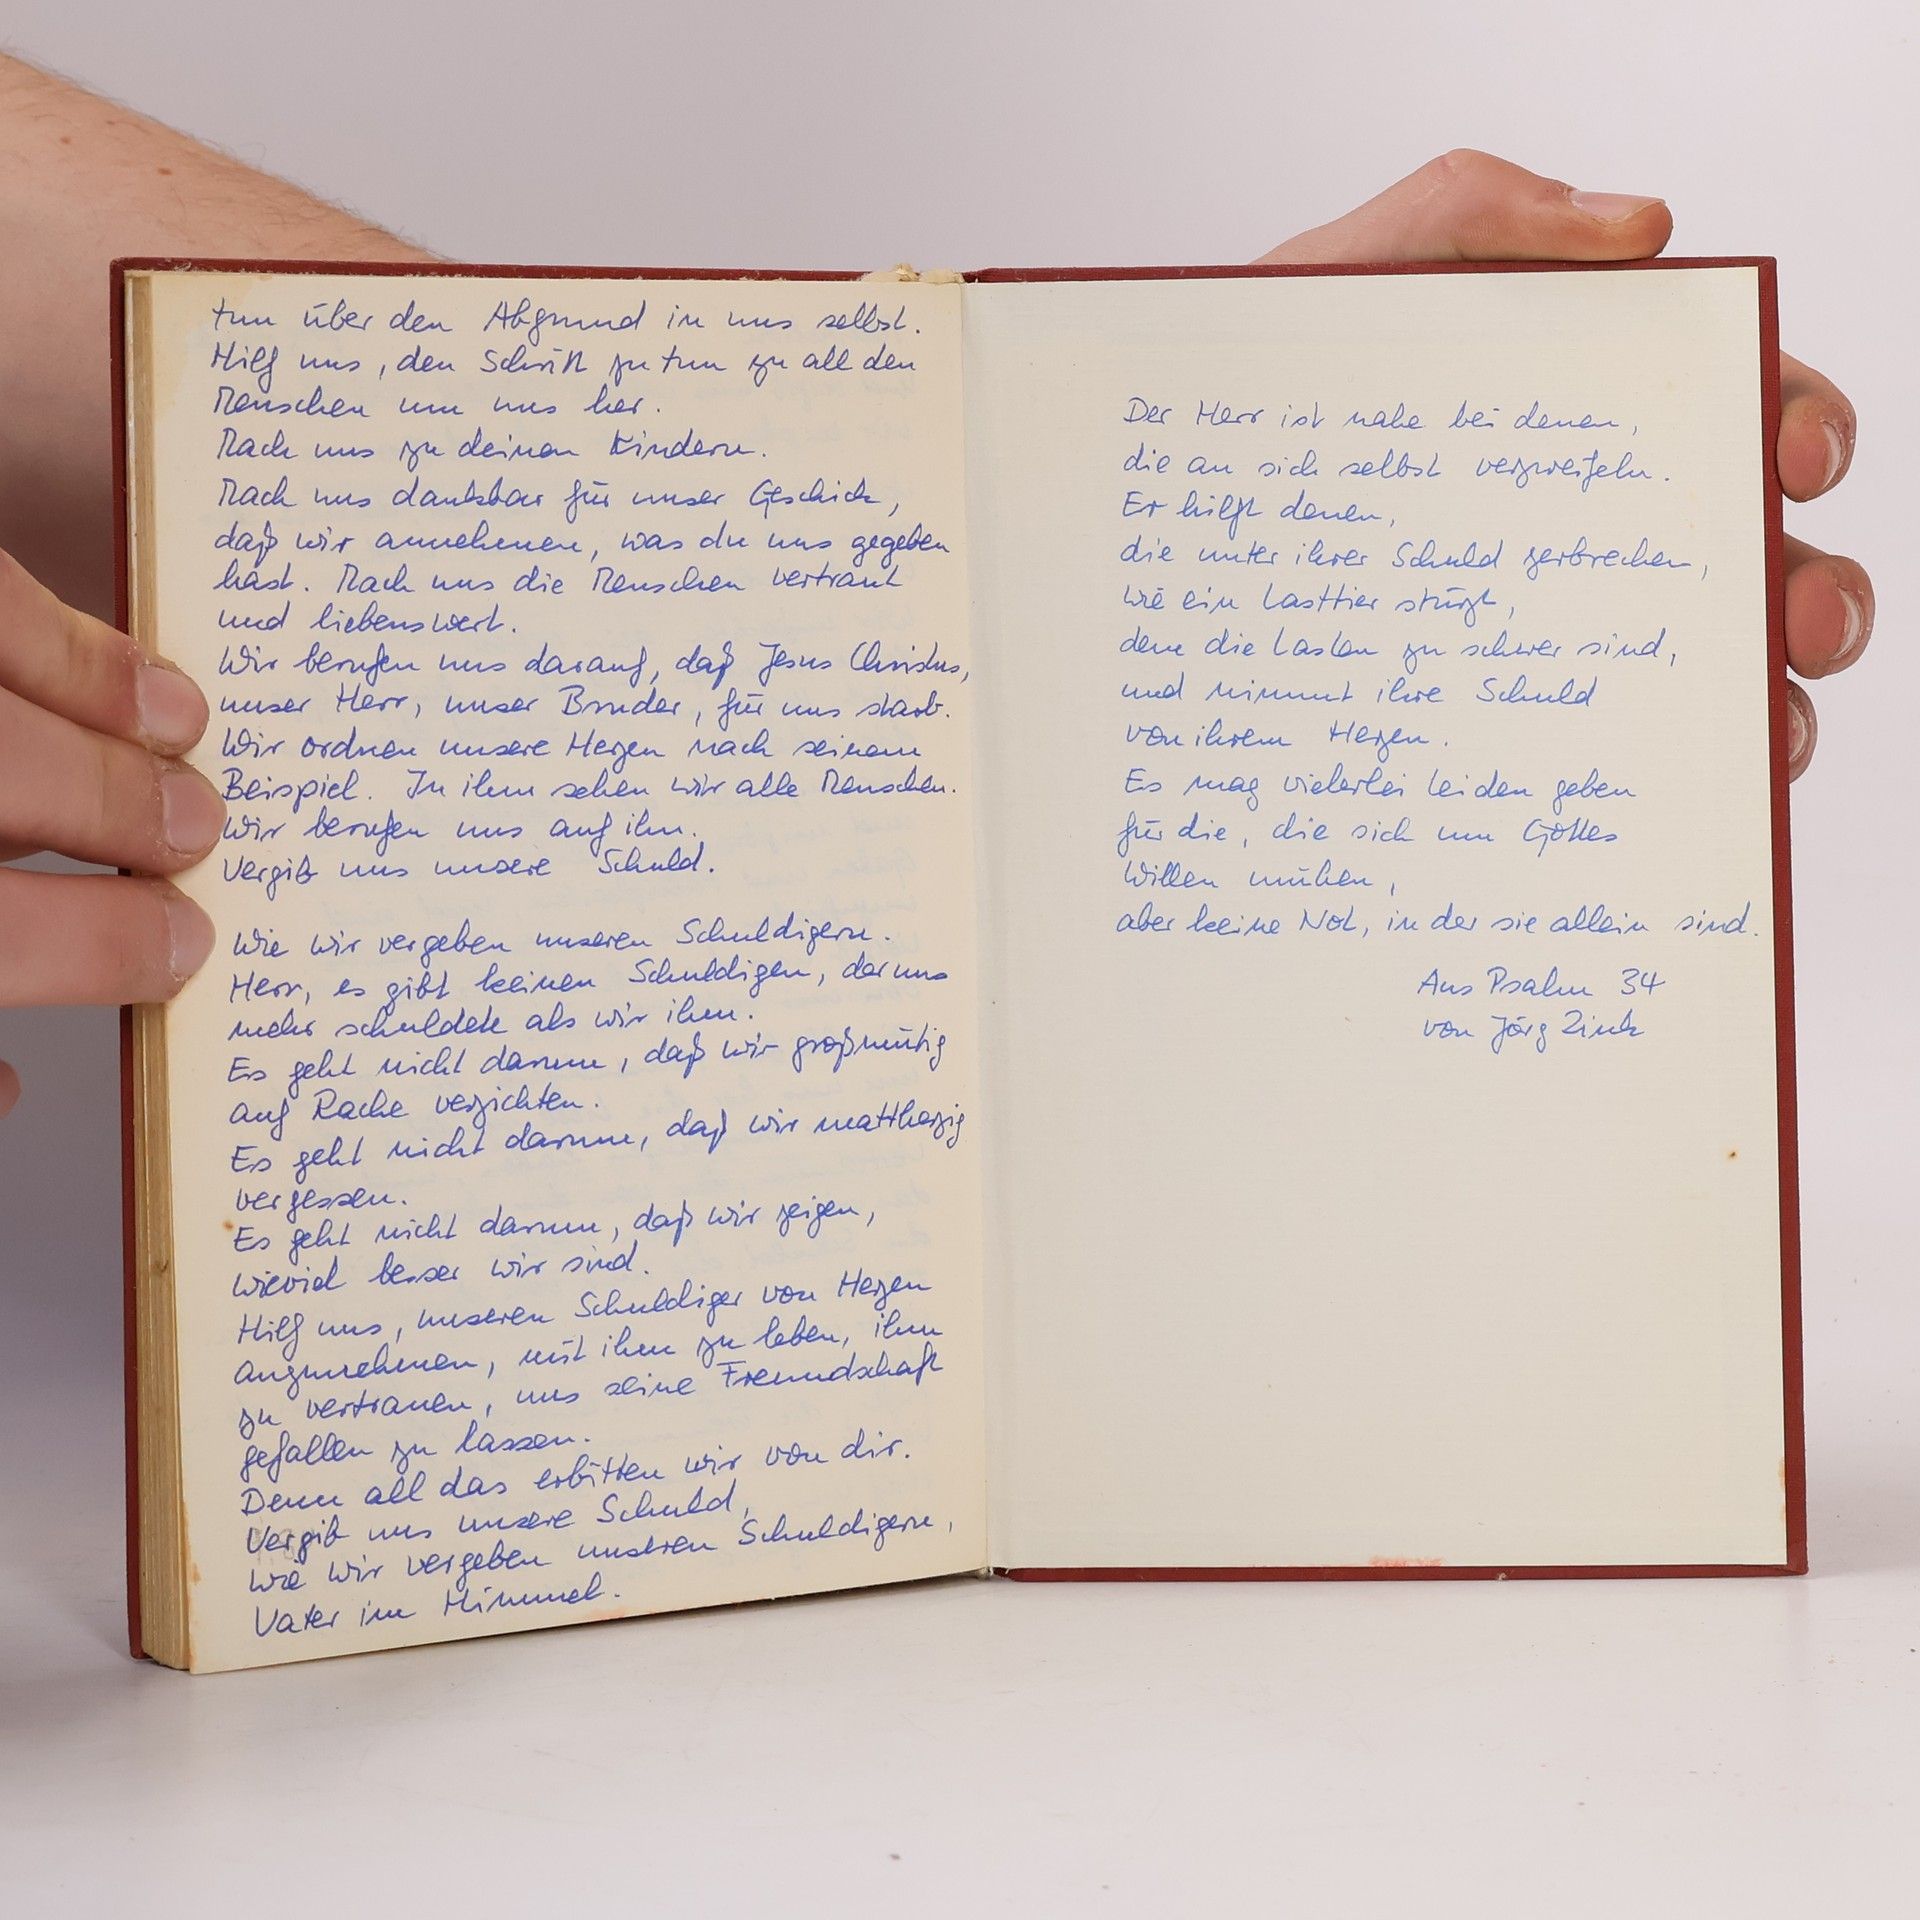 tun über den Abgrund in uns selbst.
Hilf uns, den Schritt zu tun zu all den
Menschen um uns her.
Mach uns zu deinen Kindern.
Mach uns dankbar für unser Geschick,
daß wir annehmen, was du uns gegeben
hast. Mach uns die Menschen vertraut
und liebenswert.
Wir berufen uns darauf, daß Jesus Christus,
unser Herr, unser Bruder, für uns starb.
Wir ordnen unsere Herzen nach seinem
Beispiel. In ihm sehen wir alle Menschen.
Wir berufen uns auf ihn.
Vergib uns unsere Schuld.
Wie wir vergeben unseren Schuldigern.
Herr, es gibt keinen Schuldigen, der uns
mehr schuldete als wir ihm.
Es geht nicht darum, daß wir großmütig
auf Rache verzichten.
Es geht nicht darum, daß wir mattherzig
vergessen.
Es geht nicht darum, daß wir zeigen,
wieviel besser wir sind.
Hilf uns, unseren Schuldiger von Herzen
anzunehmen, mit ihm zu leben, ihm
zu vertrauen, uns seine Freundschaft
gefallen zu lassen.
Denn all das erbitten wir von dir.
Vergib uns unsere Schuld,
wie wir vergeben unseren Schuldigern,
Vater im Himmel.
Der Herr ist nahe bei denen,
die an sich selbst verzweifeln.
Er hilft denen,
die unter ihrer Schuld zerbrechen,
wie ein Lasttier stürzt,
dem die Lasten zu schwer sind,
und nimmt ihre Schuld
von ihrem Herzen.
Es mag vielerlei Leiden geben
für die, die sich um Gottes
Willen mühen,
aber keine Not, in der sie allein sind.
Aus Psalm 34
von Jörg Zink